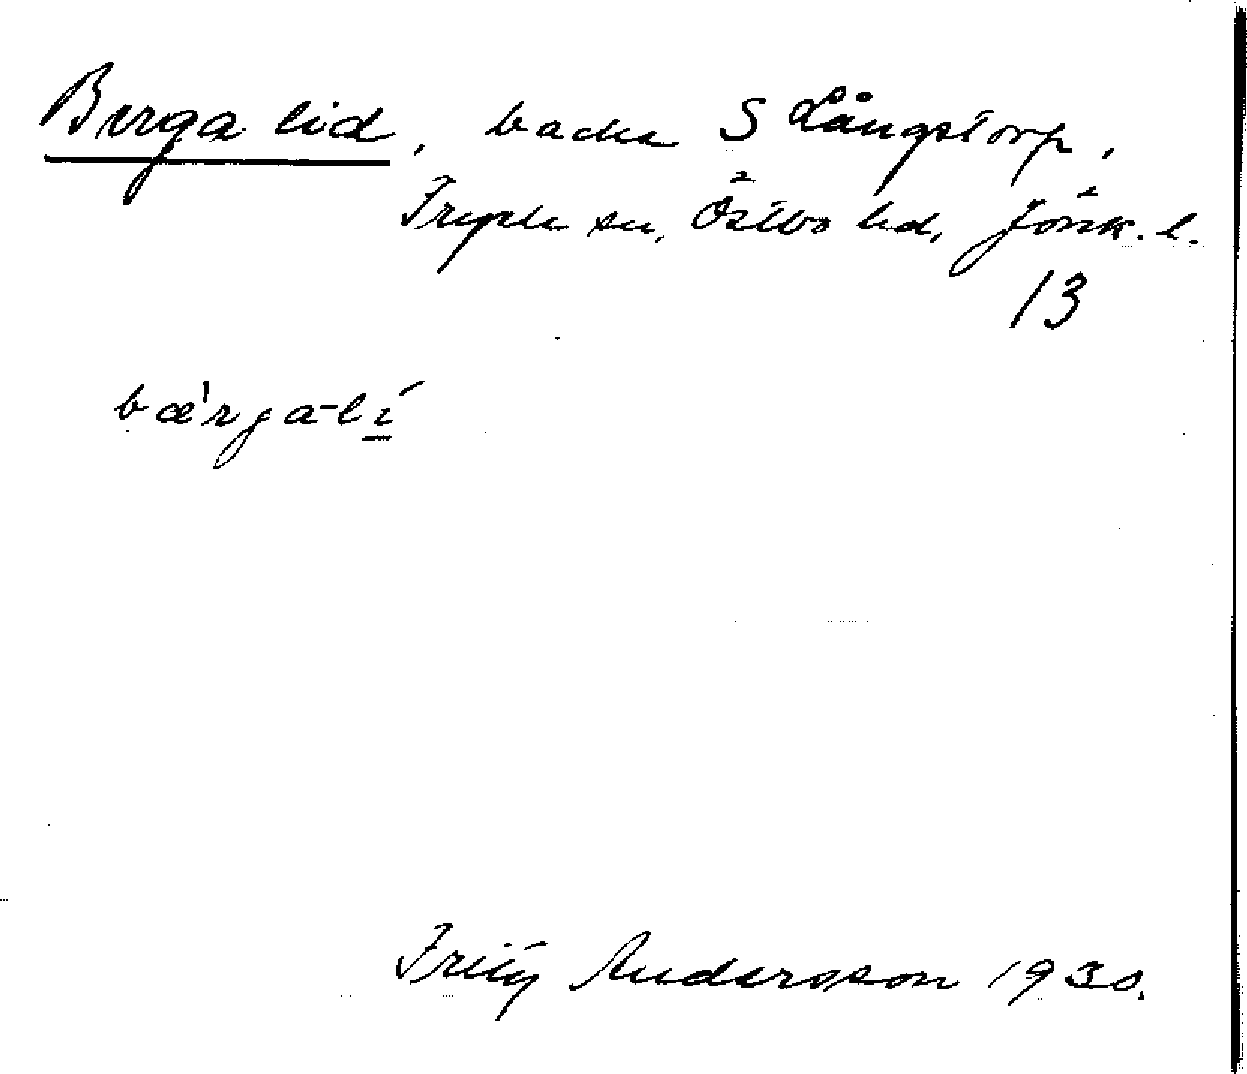 Berga lid, backe S Långstorp,
Fryele sn, Östbo hd, Jönk. l.
13
bæ'rga-lí
Fritz Andersson 1930.